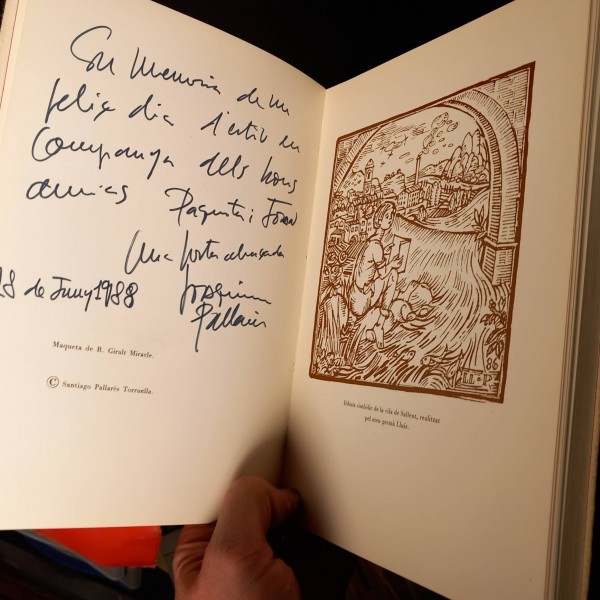 En Memoria de un
feliç dia d'estiu en
Companya dels bons
amics Paquita i Joan
Una forta abraçada
18 de Juny 1988 Joaquim
Pallarès
Maqueta de R. Giralt Miracle.
© Santiago Pallarès Torruella.
LL · P
86
Dibuix simbòlic de la vila de Sallent, realitzat
pel seu germà Lluís.